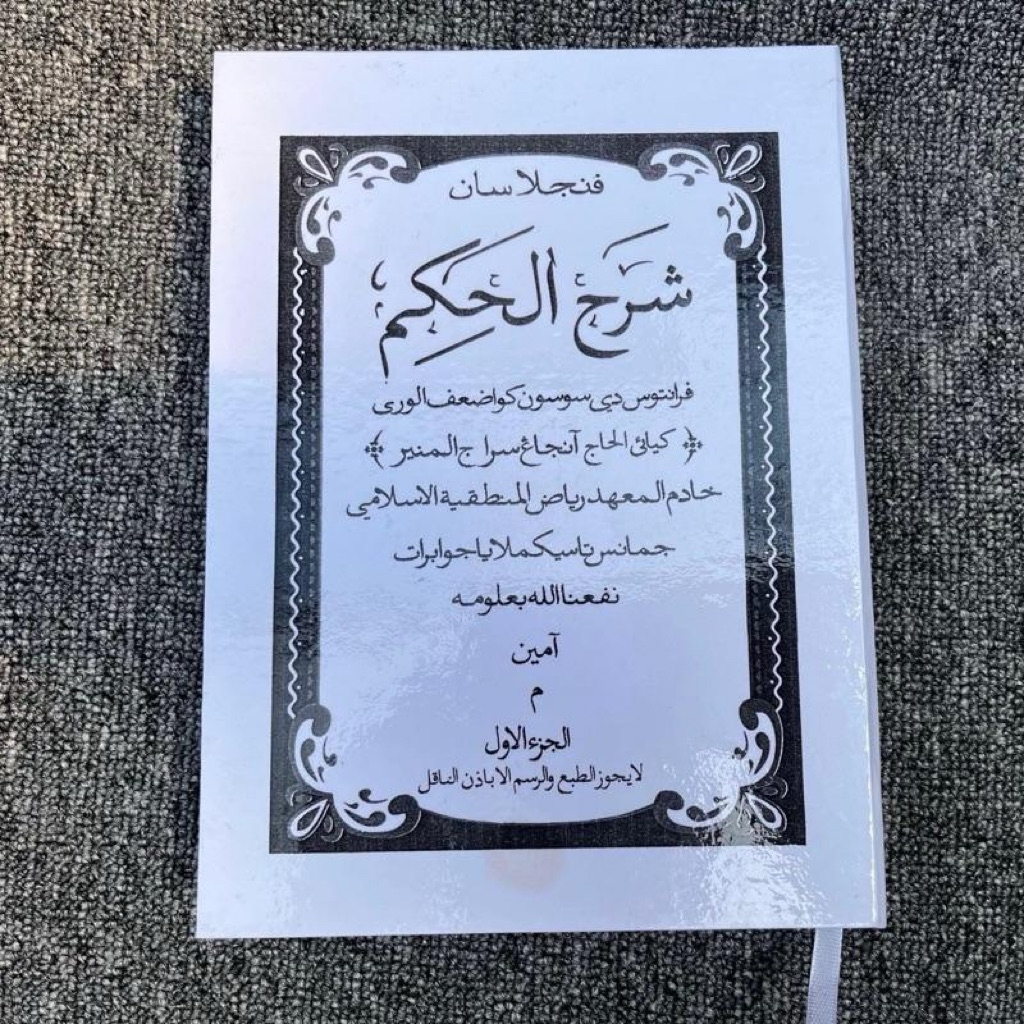 فنجلاسان
شَرَح الحِكَم
فرانتوس دي سوسون كواضعف الورى
﴿ كيائى الحاج آنجاڠ سراج المنير ﴾
خادم المعهد رياض المنطقية الاسلامي
جمانس تاسيكملايا جوابرات
نفعنا الله بعلومه
آمين
م
الجزء الاول
لا يجوز الطبع والرسم الا باذن الناقل